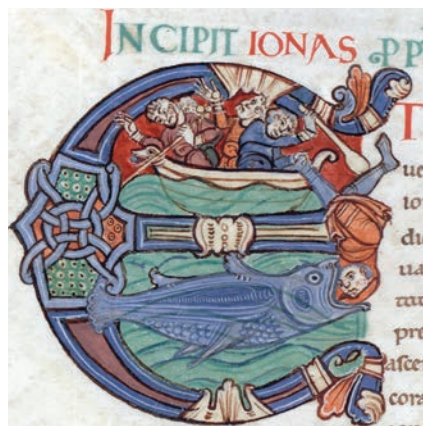 INCIPIT IONAS PP
E T
ue
io
di
ua
tat
pre
ascen
cors